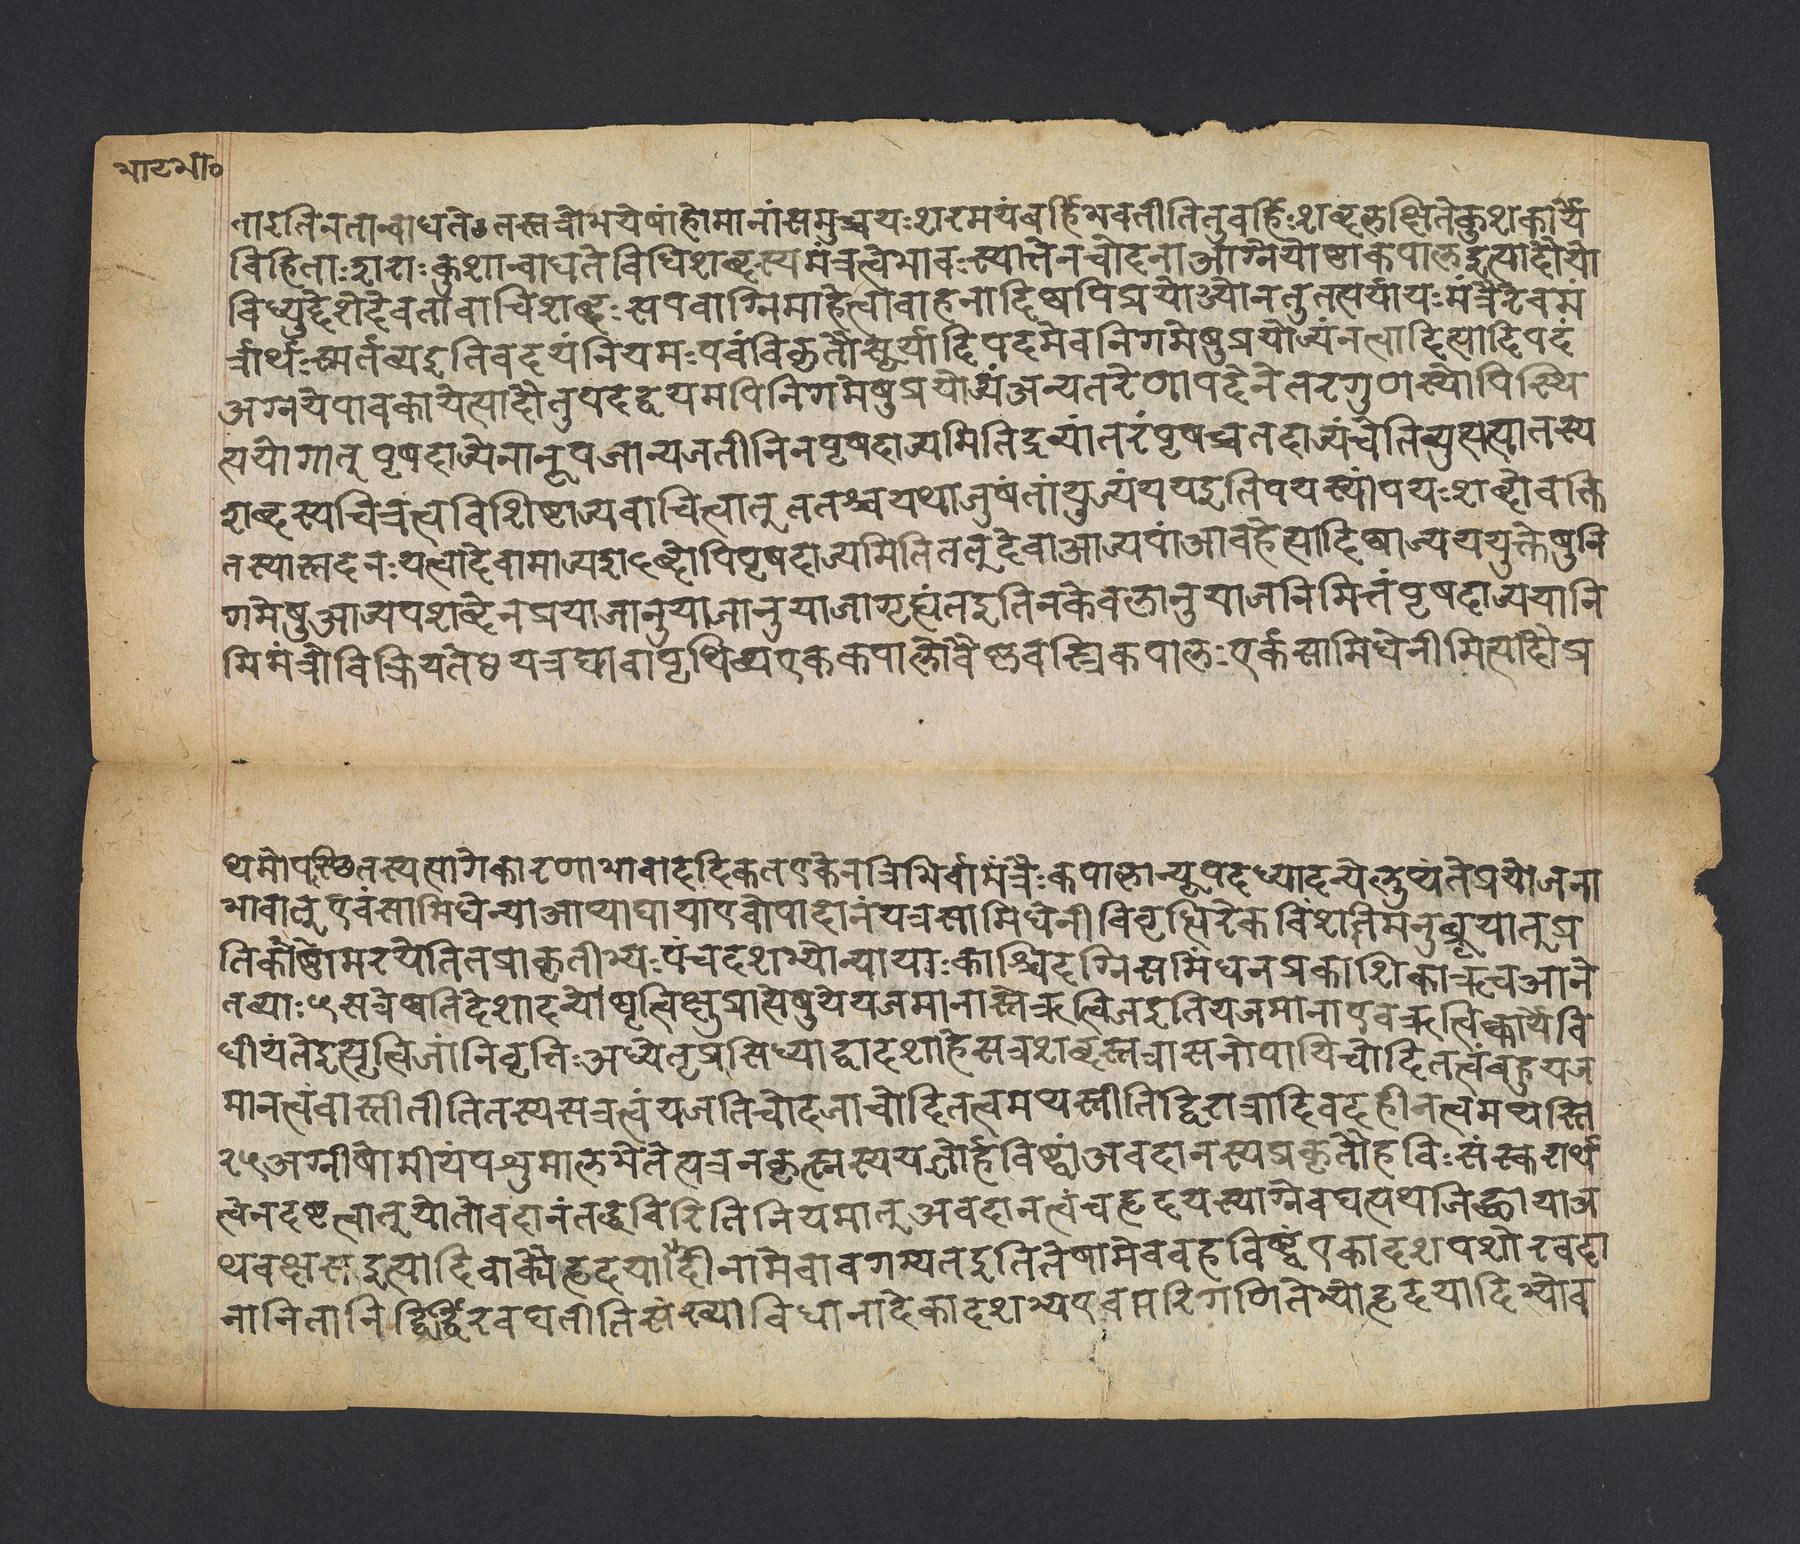 भाटभा०
ताइतिनतान्बाधते ४ तस्तत्रोभयेषांहोमानांसमुच्चयःशरमयंबर्हिर्भवतीतितुबर्हिःशब्दलक्षितेकुशकार्ये
विहिताःशराःकुशान्बाधते विधिशब्दस्यमंत्रत्वेभावःस्यात्तेनचोदनाआग्नेयोष्टाकपालइत्यादौयो
विध्युद्देशेदेवतावाचिशब्दःसएवाग्निमाहेत्यावाहनादिष्वपिप्रयोज्योनतुतत्पर्यायःमंत्रैरेवमं
त्रार्थःस्मर्तव्यइतिवदयंनियमःएवंविकृतौसूर्यादिपदमेवनिगमेषुप्रयोज्यंनत्वादित्यादिपदं
अग्नयेपावकायेत्यादौतुपदद्वयमपिनिगमेषुप्रयोज्यंअन्यतरेणापदेनेतरगुणस्योपस्थि
त्ययोगात् पृषदाज्येनानूयजान्यजतीतिनपृषदाज्यमितिद्रव्यांतरंपृषच्चतदाज्यंचेतिव्युत्पत्त्यातस्य
शब्दस्यचित्रत्वविशिष्टाज्यवाचित्वात् ततश्चयथाजुषंतांयुज्यंपयइतिपयस्यांपयःशब्दोवक्ति
तस्यास्तदनःयत्वादेवामाज्यशब्दोपिपृषदाज्यमितितत् देवाआज्यपांआवहेत्यादिष्वाज्यपयुक्तेषुनि
गमेषुआज्यपशब्देनप्रयाजानुयाजानुयाजागृह्यंतइतिनकेवलानुयाजनिमित्तंपृषदाज्यपानि
मिमंत्रोविक्रियते ४ यत्रद्यावापृथिव्यएककपालोवैष्णवस्त्रिकपालःएकंसामिधेनीमित्यादौप्र
थमोपस्थितस्यत्यागेकारणाभावादादिकतएकेनत्रिभिर्वामंत्रैःकपालान्युपदध्यादन्येलुप्यंतेप्रयोजना
भावात् एवंसामिधेन्याआप्याद्यायाएवोपादानंयत्रसामिधेनीविवृद्धिरेकविंशतिमनुब्रूयात् प्र
तिकोष्ठामरयेतितप्राकृतीभ्यःपंचदशभ्योन्यायाःकाश्चिदग्निसमिंधनप्रकाशिकाऋचआने
तव्याः ५ सत्रेष्वतिदेशादन्योष्वृत्विक्षुप्राप्तेषुयेयजमानास्तेऋत्विजइतियजमानाएवऋत्विक्कार्येवि
धीयंतेइत्यृत्विजांनिवृत्तिःअध्येतृप्रसिध्याद्वादशाहेसत्रशब्दस्तत्रासनोपायिचोदितत्वंबहुयज
मानत्वंवास्तीतीतितस्यसत्रत्वंयजतिचोदनाचोदितत्वमप्यस्तीतिद्विरात्रादिवदहीनत्वमप्यस्ति
२५अग्नीषोमीयंपशुमालभेतेत्यत्रनकृत्स्नस्यपशोर्हविष्ट्वंअवदानस्यप्रकृतौहविःसंस्करार्थ
त्वेनदृष्टत्वात् योतोवदानंतद्धविरितिनियमात् अवदानत्वंचहृदयस्याग्नेवद्यत्यथजिह्वायाअ
थवक्षसइत्यादिवाक्यैहृदयादीनामेवावगम्यतइतितेषामेववहविष्ट्वंएकादशपशोरवदा
नानितानिद्विर्द्विरवद्यतीतिसंख्याविधानादेकादशभ्यएवपरिगणितेभ्योहृदयादिभ्योव